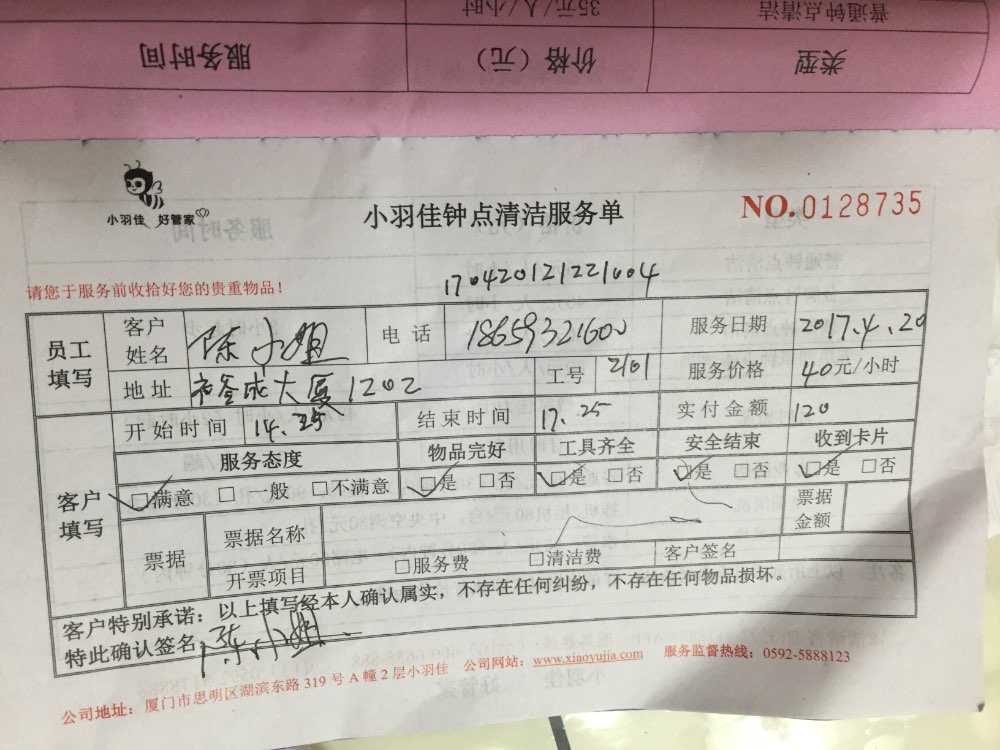 普通钟点清洁 35元/人/小时
类型 价格（元） 服务时间
小羽佳 好管家
小羽佳钟点清洁服务单
NO.0128735
请您于服务前收拾好您的贵重物品！
170420121221004
员工填写
客户姓名 陈小姐 电话 18659321600 服务日期 2017.4.20
地址 大厦1202 工号 2101 服务价格 40元/小时
客户填写
开始时间 14.25 结束时间 17.25 实付金额 120
服务态度 物品完好 工具齐全 安全结束 收到卡片
☑满意 □一般 □不满意 ☑是 □否 ☑是 □否 ☑是 □否 ☑是 □否
票据 票据名称 票据金额
开票项目 □服务费 □清洁费 客户签名
客户特别承诺：以上填写经本人确认属实，不存在任何纠纷，不存在任何物品损坏。
特此确认签名：陈小姐
公司地址：厦门市思明区湖滨东路 319 号 A 幢 2 层小羽佳 公司网站：www.xiaoyujia.com 服务监督热线：0592-5888123